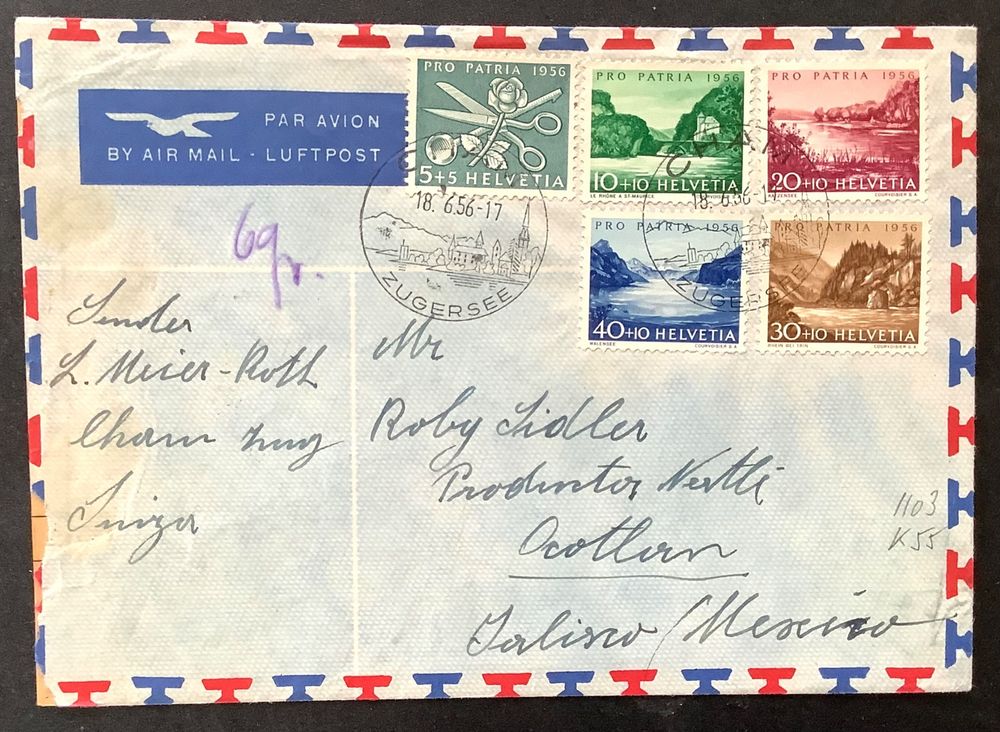 PAR AVION
BY AIR MAIL - LUFTPOST
PRO PATRIA 1956
5+5 HELVETIA
PRO PATRIA 1956
10+10 HELVETIA
LE RHÔNE A ST-MAURICE
PRO PATRIA 1956
20+10 HELVETIA
KATZENSEE COURVOISIER S.A.
PRO PATRIA 1956
40+10 HELVETIA
WALENSEE COURVOISIER S.A.
PRO PATRIA 1956
30+10 HELVETIA
RHEIN BEI TRIN COURVOISIER S.A.
CHAM
18. 6.56-17
ZUGERSEE
CHAM
18. 6.56-17
ZUGERSEE
6gr.
Sender
L. Meier-Roth
Cham Zug
Suiza
Mr
Roby Sidler
Productos Nestlé
Ocotlan
Jalisco / Mexico
1103
K55